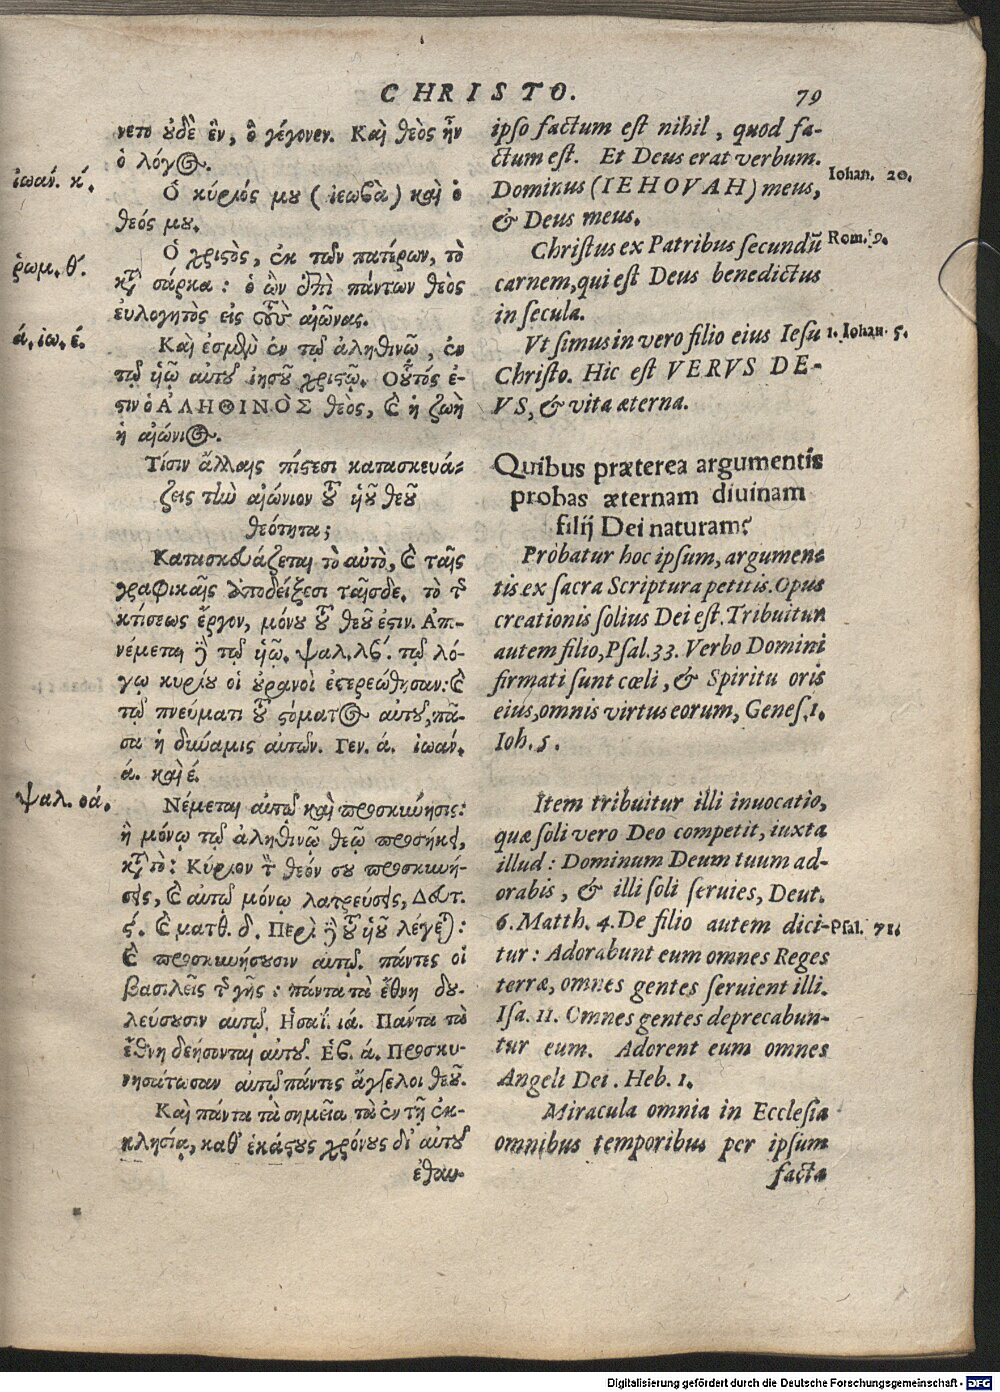 CHRISTO. 79
νετο οὐδὲ ἓν, ὃ γέγονεν. Καὶ θεὸς ἦν
ὁ λόγος.
ἰωάν. κ΄.
Ὁ κύριός μου (ἰεωβὰ) καὶ ὁ
θεός μου.
Ὁ χριστὸς, ἐκ τῶν πατέρων, τὸ
ῥωμ. θ΄.
κατὰ σάρκα: ὁ ὢν ἐπὶ πάντων θεὸς
εὐλογητὸς εἰς τοὺς αἰῶνας.
ά. ἰω. έ.
Καὶ ἐσμὲν ἐν τῷ ἀληθινῷ, ἐν
τῷ ἡῷ αὐτοῦ ἰησοῦ χριστῷ. Οὗτός ἐ-
στιν ὁ ἈΛΗΘΙΝῸΣ θεὸς, καὶ ἡ ζωὴ
ἡ αἰώνιος.
Τίσιν ἄλλαις πίστεσι κατασκευά-
ζεις τὴν αἰώνιον τοῦ ἡοῦ θεοῦ
θεότητα;
Κατασκευάζεται τὸ αὐτὸ, καὶ ταῖς
γραφικαῖς ἀποδείξεσι ταῖσδε. τὸ τῆς
κτίσεως ἔργον, μόνου τοῦ θεοῦ ἐστιν. Ἀπ-
νέμεται δὲ τῷ ἡῷ. ψαλ. λς΄. τῷ λό-
γῳ κυρίου οἱ οὐρανοὶ ἐστερεώθησαν: καὶ
τῷ πνεύματι τοῦ στόματος αὐτοῦ, πᾶ-
σα ἡ δύναμις αὐτῶν. Γεν. ά. ἰωάν.
ά. καὶ έ.
ψαλ. οά.
Νέμεται αὐτῷ καὶ προσκύνησις:
ἣ μόνῳ τῷ ἀληθινῷ θεῷ προσήκει,
κατὰ τὸ: Κύριον τὸν θεόν σου προσκυνή-
σεις, καὶ αὐτῷ μόνῳ λατρεύσεις, Δευτ.
ς΄. καὶ ματθ. δ. Περὶ δὲ τοῦ ἡοῦ λέγεται:
καὶ προσκυνήσουσιν αὐτῷ πάντες οἱ
βασιλεῖς τῆς γῆς: πάντα τὰ ἔθνη δου-
λεύσουσιν αὐτῷ. Ἡσαΐ. ιά. Πάντα τὰ
ἔθνη δεήσονται αὐτοῦ. Ἑβ. ά. Προσκυ-
νησάτωσαν αὐτῷ πάντες ἄγγελοι θεοῦ.
Καὶ πάντα τὰ σημεῖα τὰ ἐν τῇ ἐκ-
κλησίᾳ, καθ' ἑκάστους χρόνους δι' αὐτοῦ
ἐθαυ-
ipso factum est nihil, quod fa-
ctum est. Et Deus erat verbum.
Iohan. 20.
Dominus (IEHOVAH) meus,
& Deus meus.
Christus ex Patribus secundũ
Rom. 9.
carnem, qui est Deus benedictus
in secula.
Vt simus in vero filio eius Iesu
1. Iohan. 5.
Christo. Hic est VERVS DE-
VS, & vita æterna.
Quibus præterea argumentis
probas æternam diuinam
filij Dei naturam?
Probatur hoc ipsum, argumen-
tis ex sacra Scriptura petitis. Opus
creationis solius Dei est. Tribuitur
autem filio, Psal. 33. Verbo Domini
firmati sunt cœli, & Spiritu oris
eius, omnis virtus eorum, Genes. 1.
Ioh. 5.
Item tribuitur illi inuocatio,
quæ soli vero Deo competit, iuxta
illud: Dominum Deum tuum ad-
orabis, & illi soli seruies, Deut.
6. Matth. 4. De filio autem dici-
Psal. 71.
tur: Adorabunt eum omnes Reges
terræ, omnes gentes seruient illi.
Isa. 11. Omnes gentes deprecabun-
tur eum. Adorent eum omnes
Angeli Dei. Heb. 1.
Miracula omnia in Ecclesia
omnibus temporibus per ipsum
facta
Digitalisierung gefördert durch die Deutsche Forschungsgemeinschaft - DFG